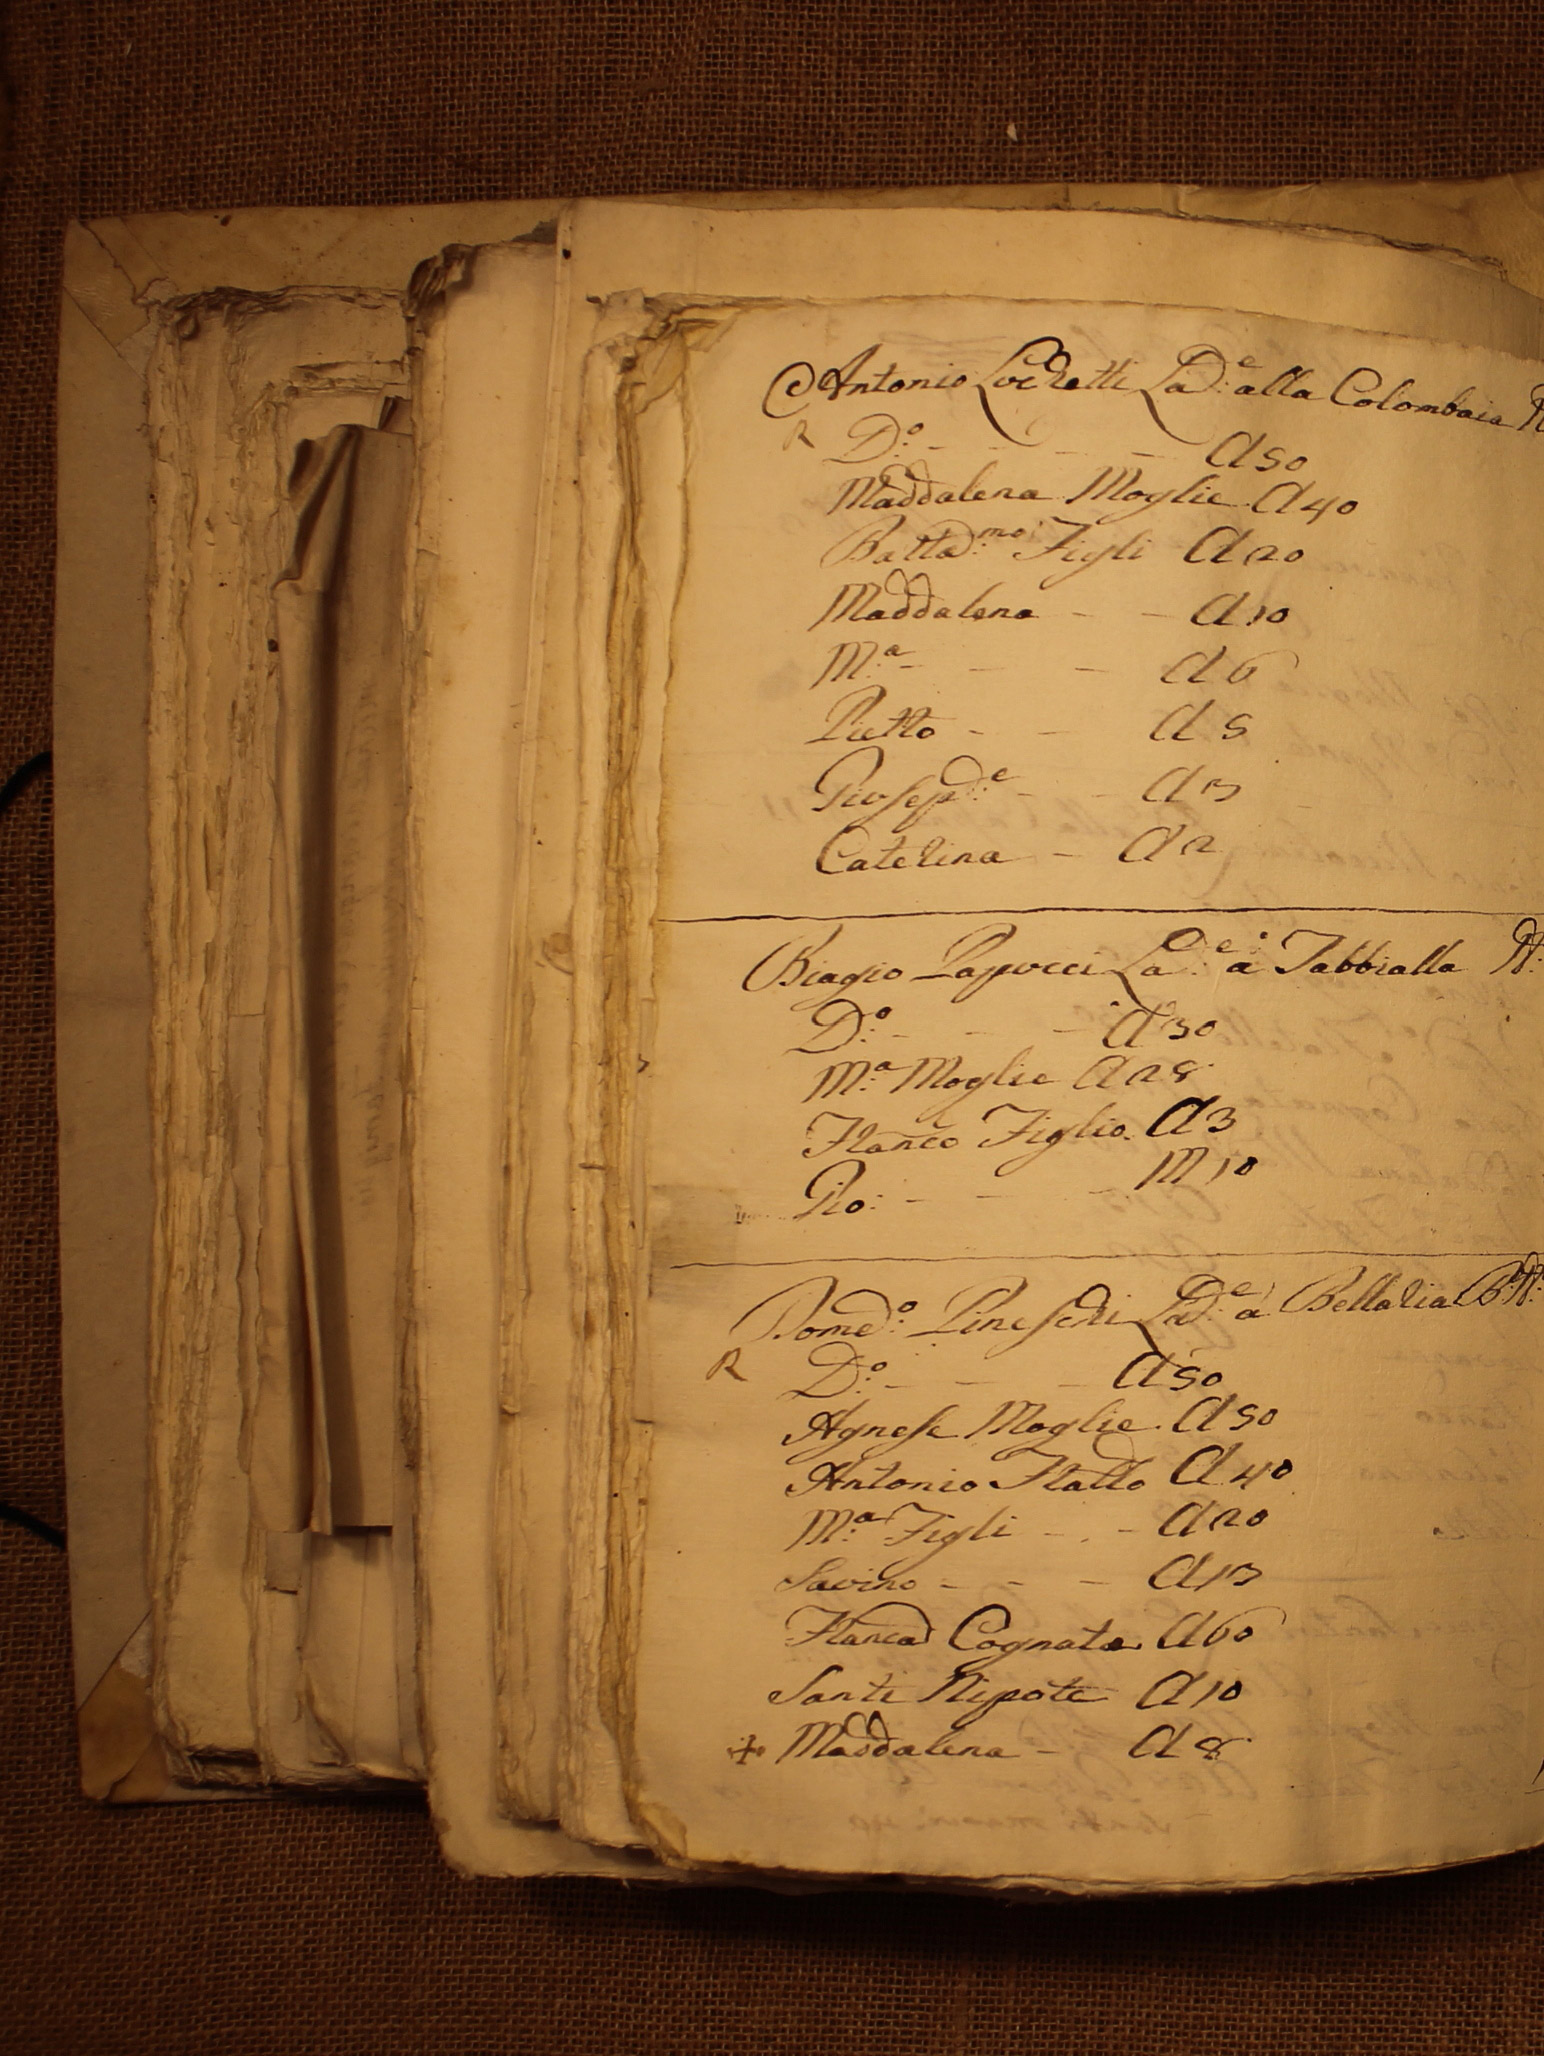 Antonio Lochetti Lad:e alla Colombaia N
R D:o - - - - A 50
Maddalena Moglie A 40
Batta d:mo Figli A 20
Maddalena - - A 10
M:a - - - A 6
Pietro - - A 5
Giusepp:e - - A 3
Caterina - A 2
Biagio Papucci Lad:e a Fabbialla N:
D:o - - - A 30
M:a Moglie A 28
Franco Figlio. A 3
Gio: - - - M 10
Dome:o Lad:e a Bellaria N:
R D:o - - - A 50
Agnese Moglie. A 50
Antonio Fratto A 40
M:a Figli - - A 20
Savino - - - A 13
Franca Cognata A 60
Santi Nipote A 10
Maddalena - A 8